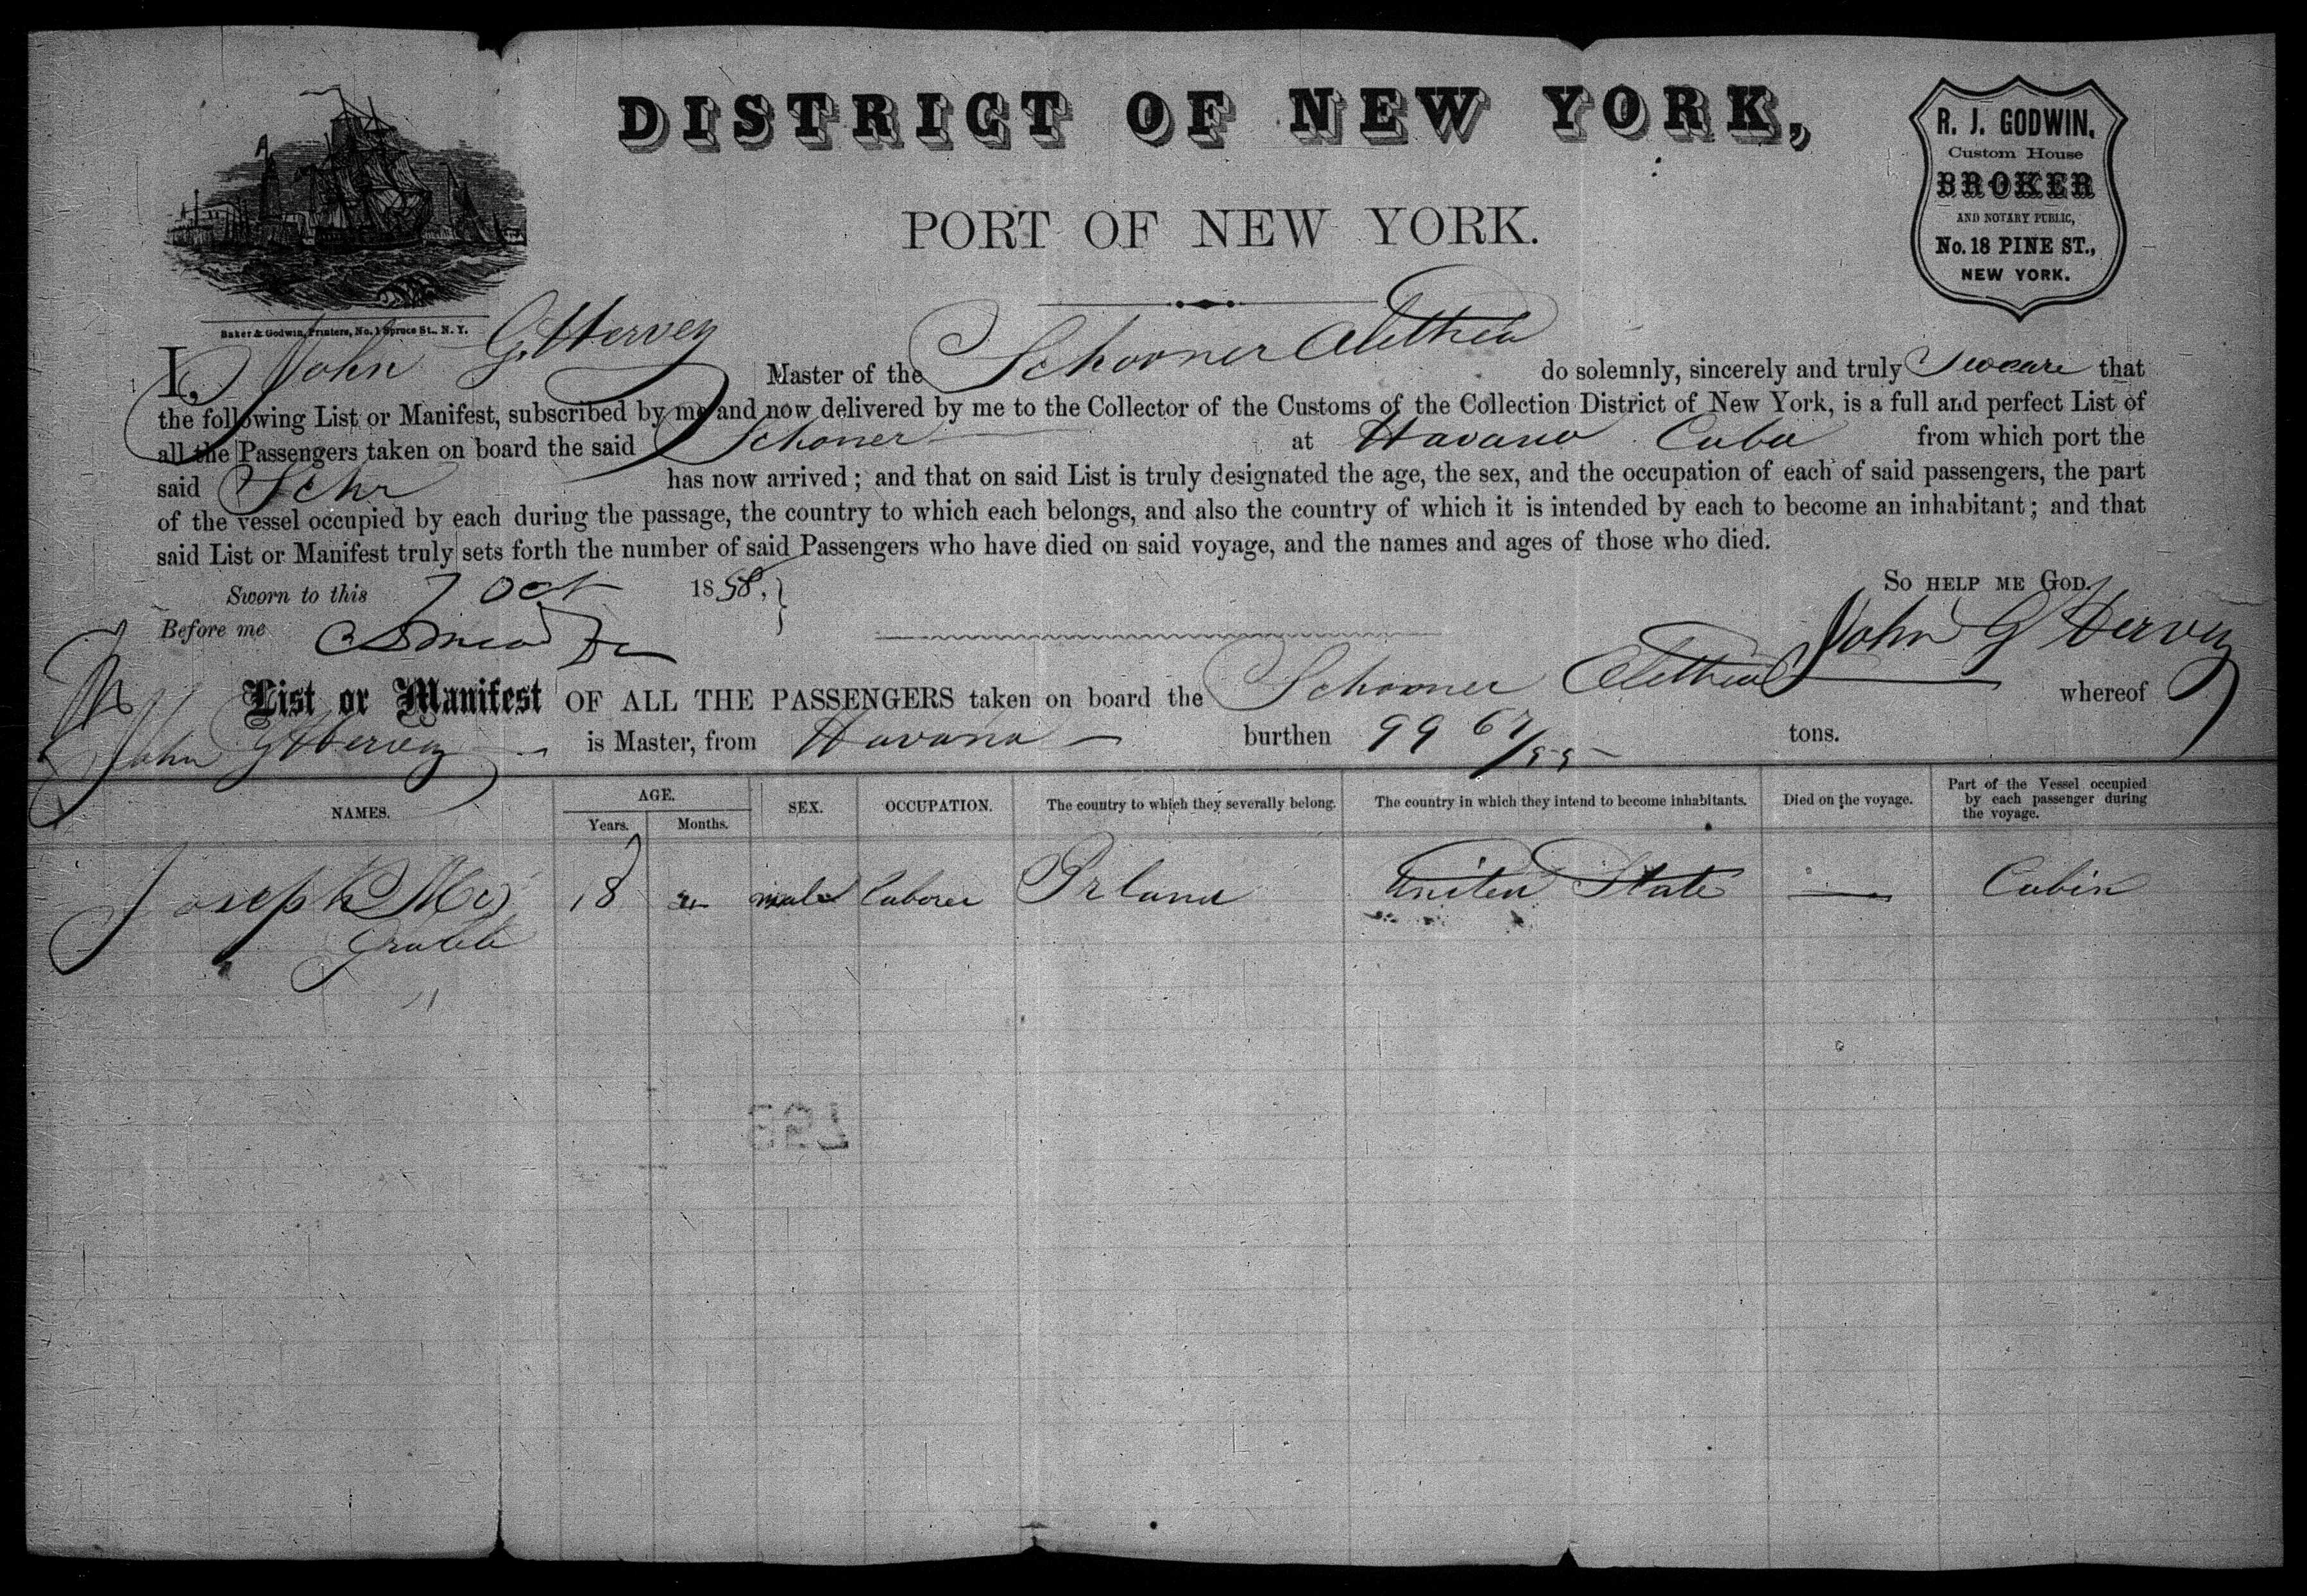 DISTRICT OF NEW YORK,
PORT OF NEW YORK.
R. J. GODWIN,
Custom House
BROKER
AND NOTARY PUBLIC,
No. 18 PINE ST.,
NEW YORK.
Baker & Godwin, Printers, No. 1 Spruce St., N. Y.
I, John G. Hervey Master of the Schooner Alethea do solemnly, sincerely and truly Sweare that
the following List or Manifest, subscribed by me and now delivered by me to the Collector of the Customs of the Collection District of New York, is a full and perfect List of
all the Passengers taken on board the said Schoner at Havana Cuba from which port the
said Schr has now arrived; and that on said List is truly designated the age, the sex, and the occupation of each of said passengers, the part
of the vessel occupied by each during the passage, the country to which each belongs, and also the country of which it is intended by each to become an inhabitant; and that
said List or Manifest truly sets forth the number of said Passengers who have died on said voyage, and the names and ages of those who died.
Sworn to this 7 Oct 1858, So HELP ME GOD.
Before me John G Hervey
List or Manifest OF ALL THE PASSENGERS taken on board the Schooner Alethea whereof
John G Hervey is Master, from Havana burthen 99 67/95 tons.
NAMES. AGE. Years. Months. SEX. OCCUPATION. The country to which they severally belong. The country in which they intend to become inhabitants. Died on the voyage. Part of the Vessel occupied by each passenger during the voyage.
Joseph Mc 18 male laborer Irland United State — Cabin